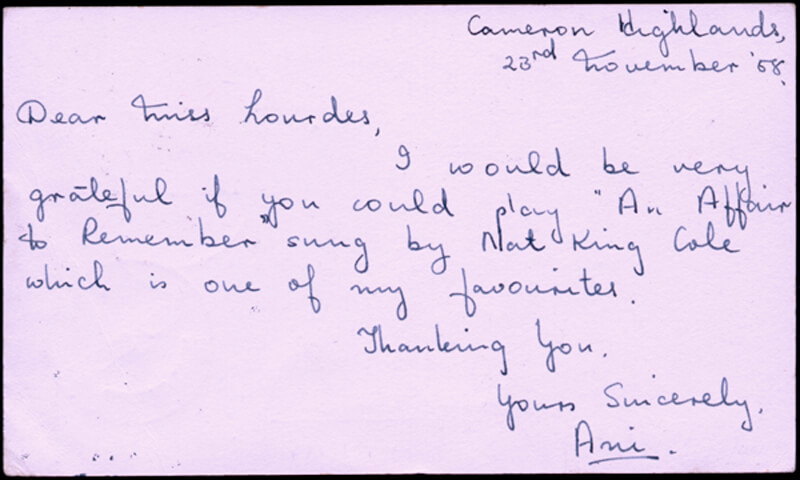 Cameron Highlands,
23rd November '58.
Dear Miss Lourdes,
I would be very
grateful if you could play "An Affair
to Remember" sung by Nat King Cole
which is one of my favourites.
Thanking You.
Yours Sincerely,
Ani.